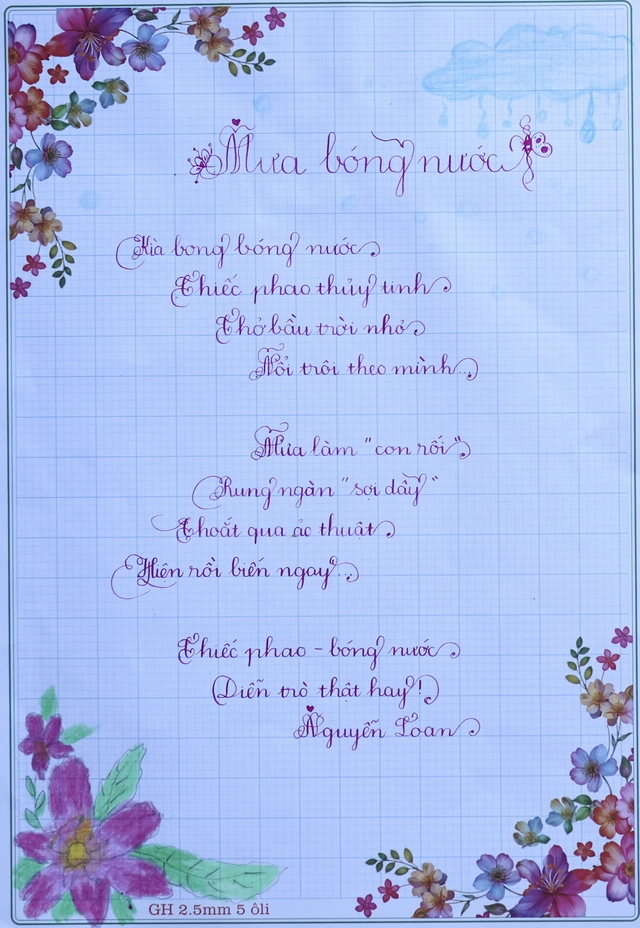 Mưa bóng nước
Kìa bong bóng nước
Chiếc phao thủy tinh
Thở bầu trời nhỏ
Nổi trôi theo mình...
Mưa làm "con rối"
Rung ngàn "sợi dây"
Thoắt qua ảo thuật
Hiện rồi biến ngay...
Chiếc phao - bóng nước
Diễn trò thật hay!
Nguyễn Loan
GH 2.5mm 5 ôli